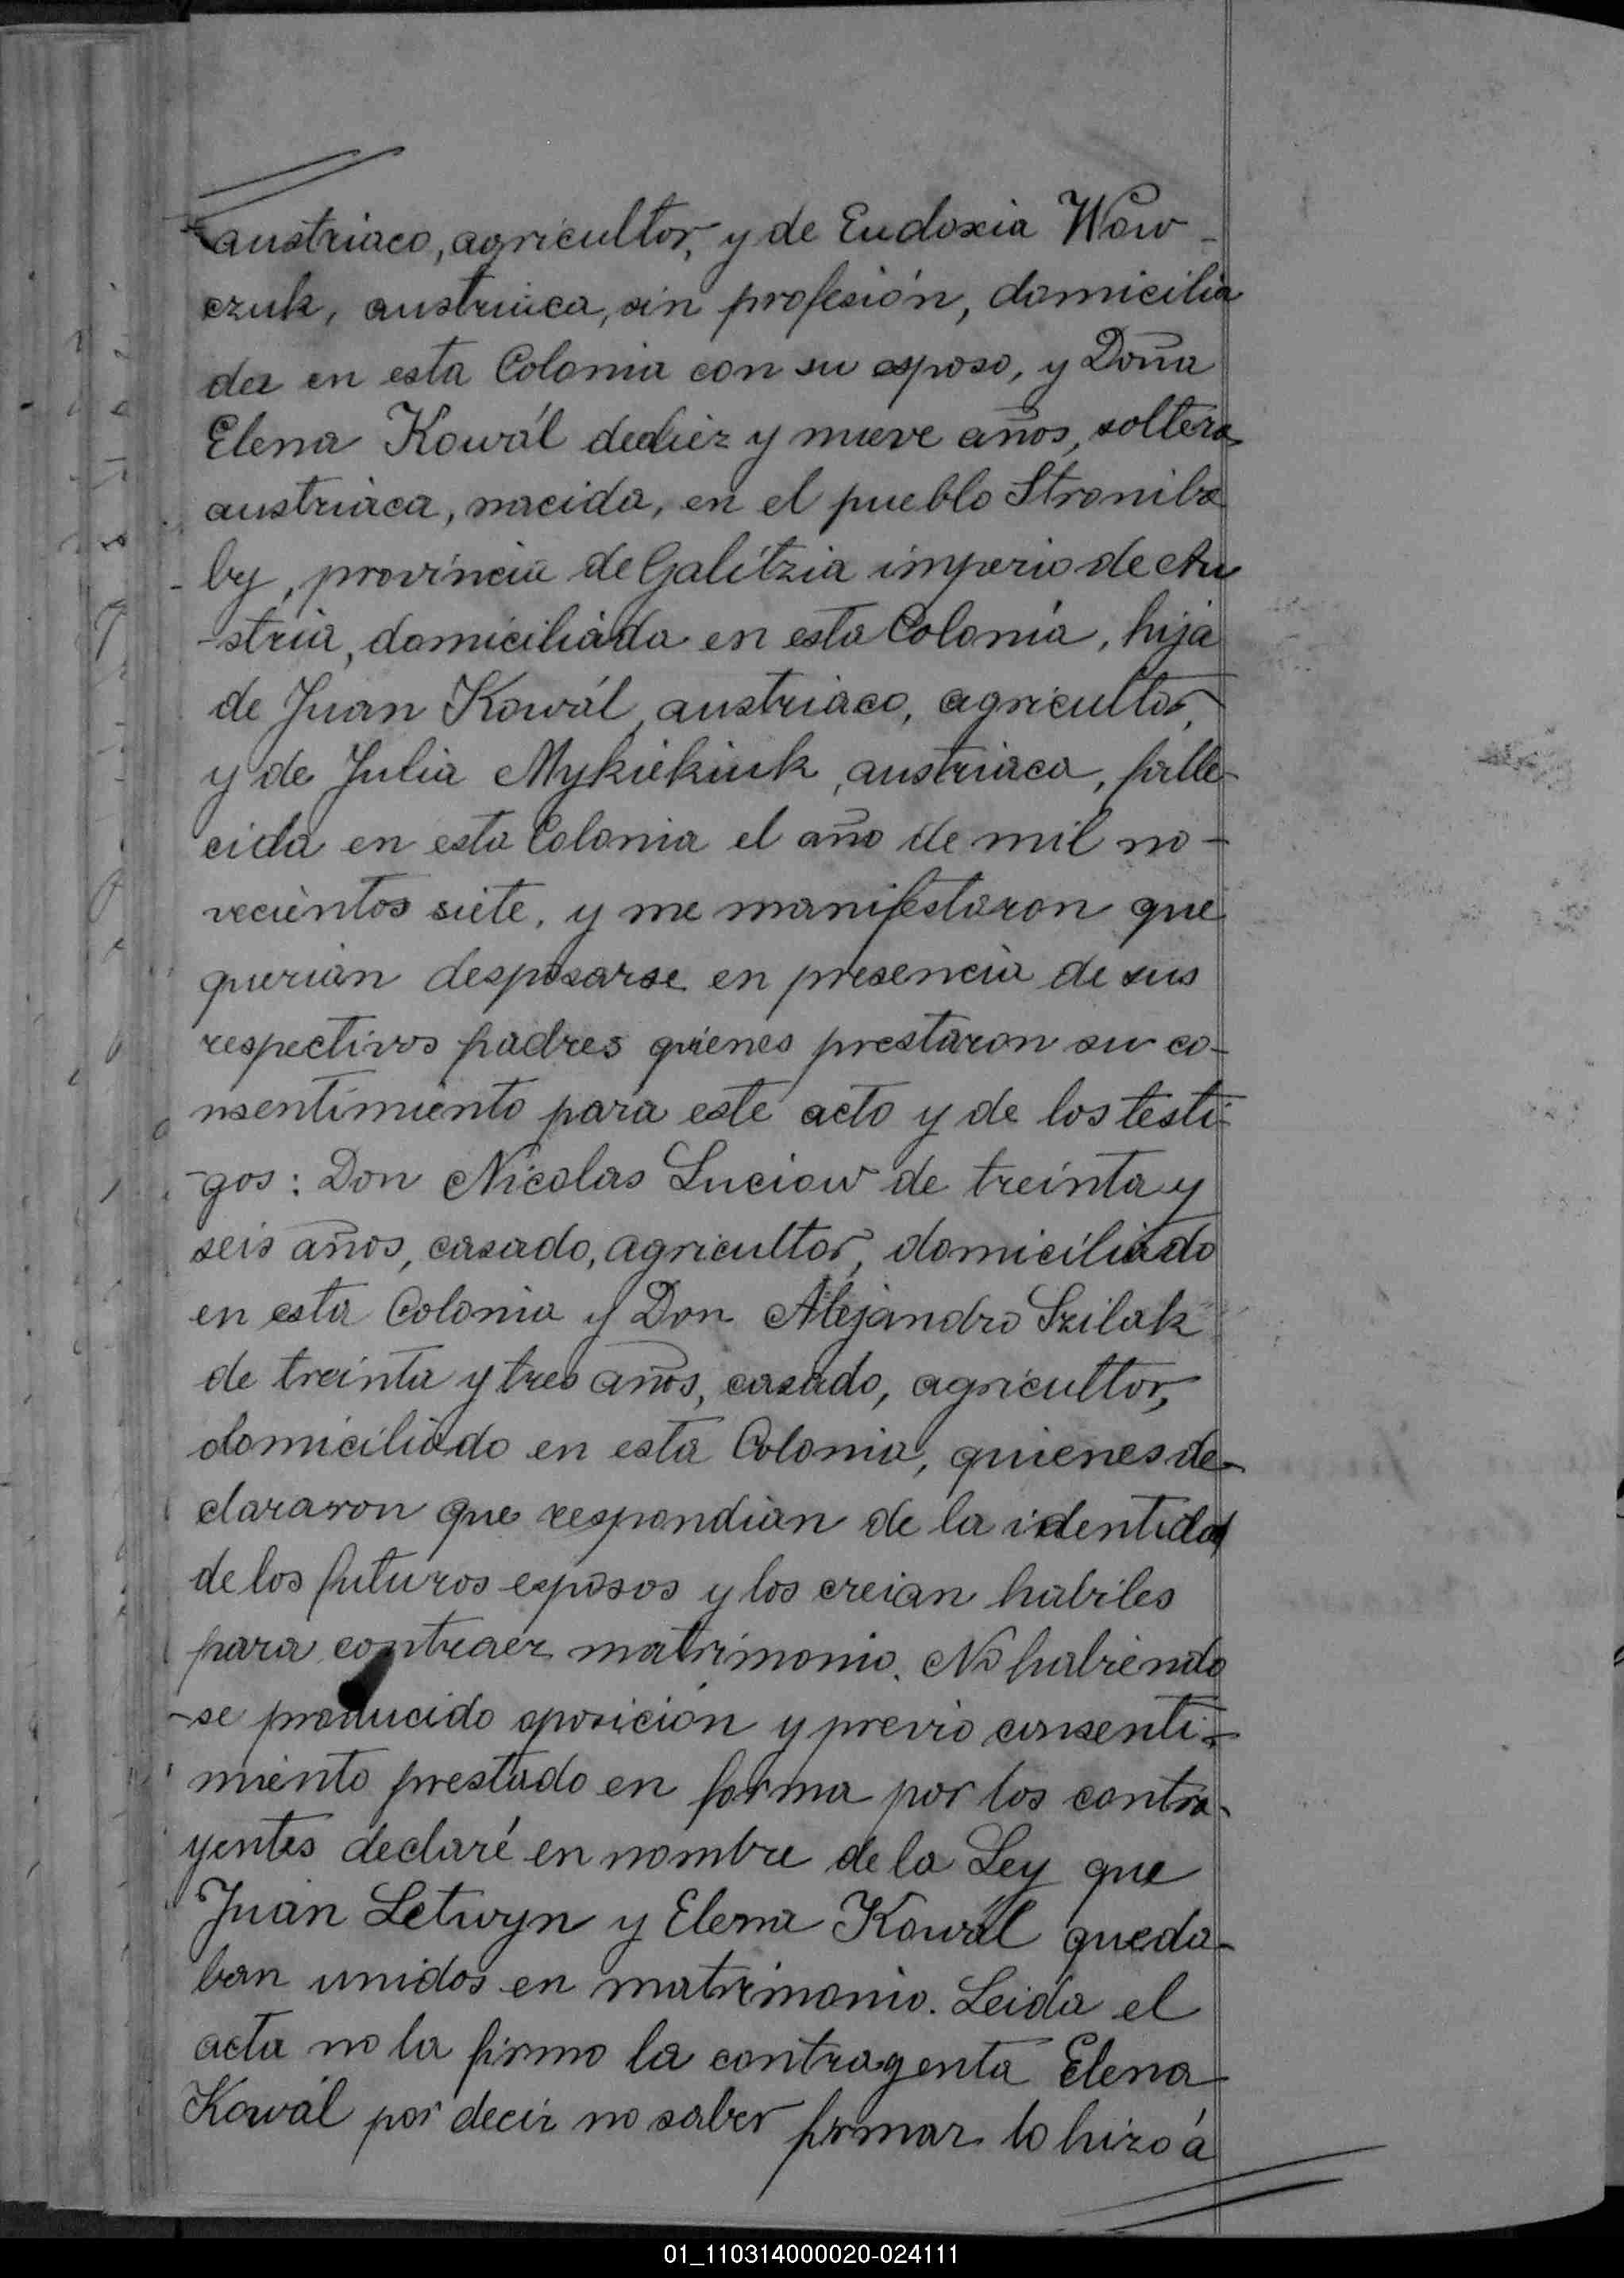 austriaco, agricultor, y de Eudoxia Waw-
czuk, austriaca, sin profesión, domicilia
da en esta Colonia con su esposo, y Doña
Elena Kowál dediez y nueve años, soltera
austriaca, nacida, en el pueblo Stroniba
by, provincia de Galitzia imperio de Au
-stria, domiciliada en esta Colonia, hija
de Juan Kowál, austriaco, agricultor,
y de Julia Mykiekiuk, austriaca, falle-
cida en esta Colonia el año de mil no-
vecientos siete, y me manifestaron que
querian desposarse en presencia de sus
respectivos padres quienes prestaron su co-
nsentimiento para este acto y de los testi-
-gos: Don Nicolas Luciow de treinta y
seis años, casado, agricultor, domiciliado
en esta Colonia y Don Alejandro Szilak
de treinta y tres años, casado, agricultor,
domiciliado en esta Colonia, quienes de-
clararon que respondian de la identidad
de los futuros esposos y los creian habiles
para contraer matrimonio. No habiendo
-se producido oposición y previo consenti-
miento prestado en forma por los contra-
yentes declaré en nombre de la Ley que
Juan Letwyn y Elena Kowál queda-
ban unidos en matrimonio. Leida el
acta no la firmo la contragenta Elena
Kowál por decir no saber firmar lo hizo á
01_110314000020-024111